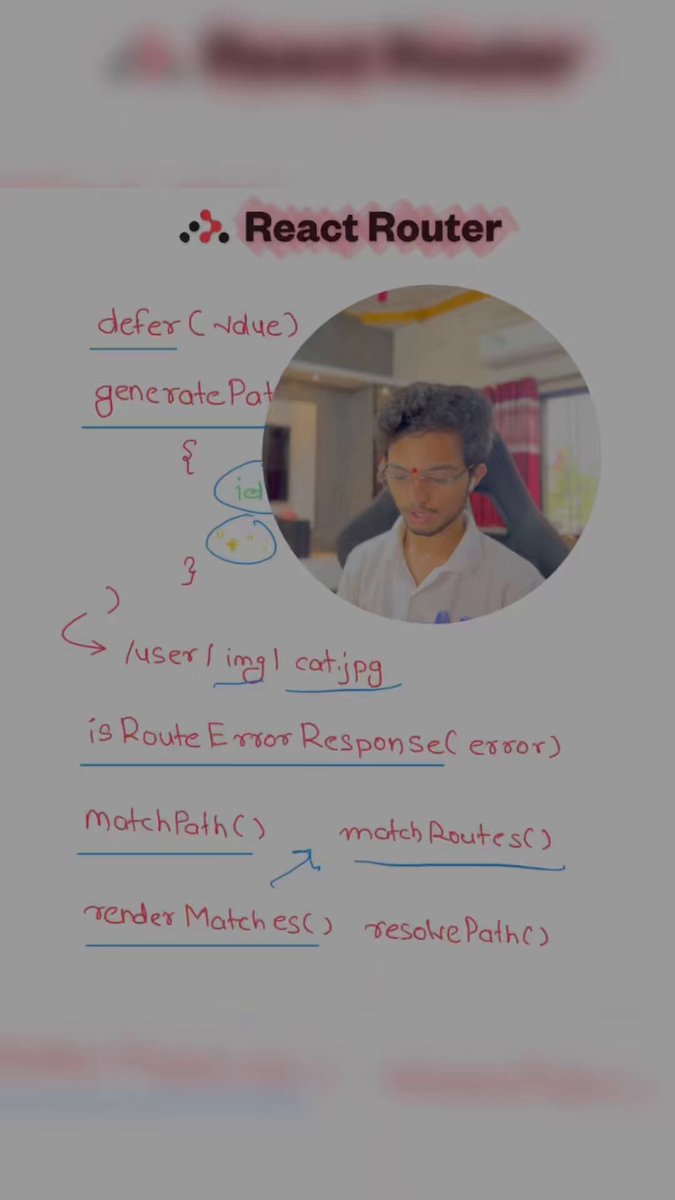 React Router
defer(value)
generatePat
{
id
"*"
}
)
/user/img/cat.jpg
isRouteErrorResponse(error)
matchPath()
matchRoutes()
renderMatches()
resolvePath()